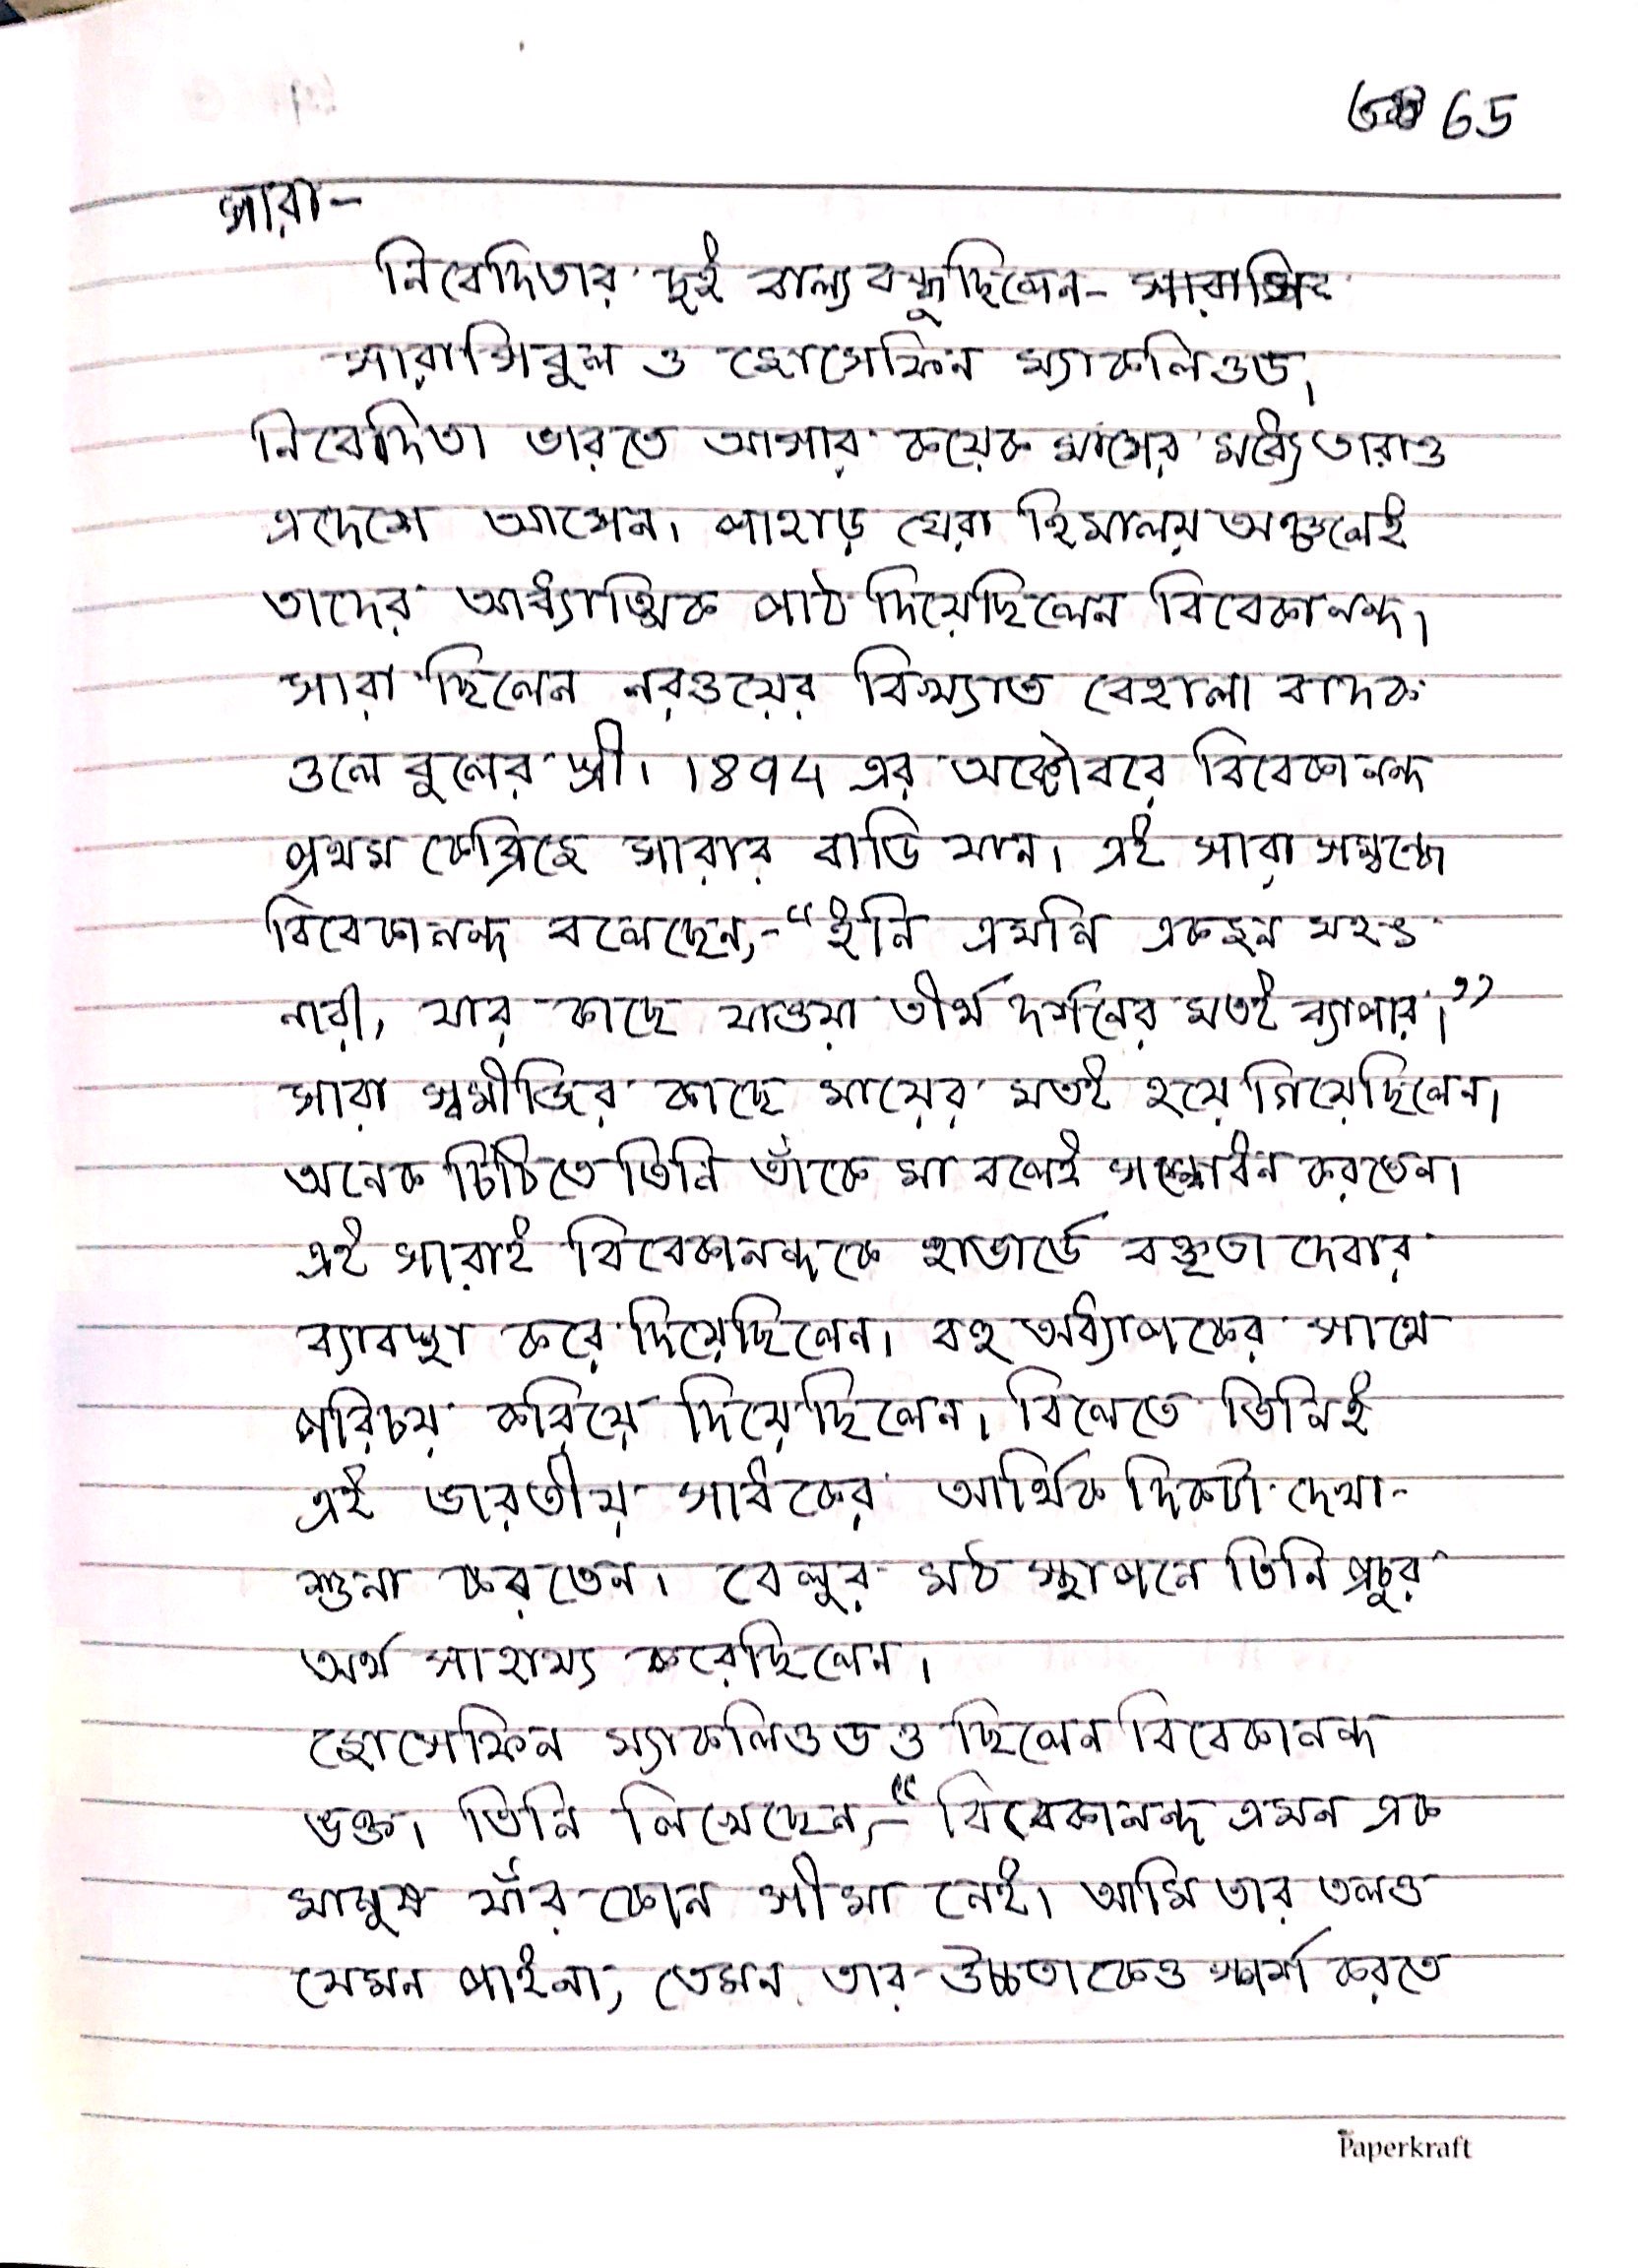 65
সারা-
নিবেদিতার দুই বাল্য বন্ধু ছিলেন- সারা
সারা সি বুল ও জোসেফিন ম্যাকলিওড।
নিবেদিতা ভারতে আসার কয়েক মাসের মধ্যে তারাও
এদেশে আসেন। পাহাড় ঘেরা হিমালয় অঞ্চলেই
তাদের আধ্যাত্মিক পাঠ দিয়েছিলেন বিবেকানন্দ।
সারা ছিলেন নরওয়ের বিখ্যাত বেহালা বাদক
ওলে বুলের স্ত্রী। 1894 এর অক্টোবরে বিবেকানন্দ
প্রথম কেব্রিজে সারার বাডি যান। এই সারা সম্বন্ধে
বিবেকানন্দ বলেছেন,- "ইনি এমনি একজন মহৎ
নারী, যার কাছে যাওয়া তীর্থ দর্শনের মতই ব্যাপার।"
সারা স্বমীজির কাছে মায়ের মতই হয়ে গিয়েছিলেন।
অনেক চিঠিতে তিনি তাঁকে মা বলেই সম্বোধন করতেন।
এই সারাই বিবেকানন্দকে হাভার্ডে বক্তৃতা দেবার
ব্যাবস্থা করে দিয়েছিলেন। বহু অধ্যাপকের সাথে
পরিচয় করিয়ে দিয়েছিলেন। বিলেতে তিনিই
এই ভারতীয় সাধকের আর্থিক দিকটা দেখা-
শুনা করতেন। বেলুর মঠ স্থাপনে তিনি প্রচুর
অর্থ সাহায্য করেছিলেন।
জোসেফিন ম্যাকলিওডও ছিলেন বিবেকানন্দ
ভক্ত। তিনি লিখেছেন,- "বিবেকানন্দ এমন এক
মানুষ যাঁর কোন সীমা নেই। আমি তার তলও
যেমন পাইনা, তেমন তার উচ্চতাকেও স্পর্শ করতে
Paperkraft